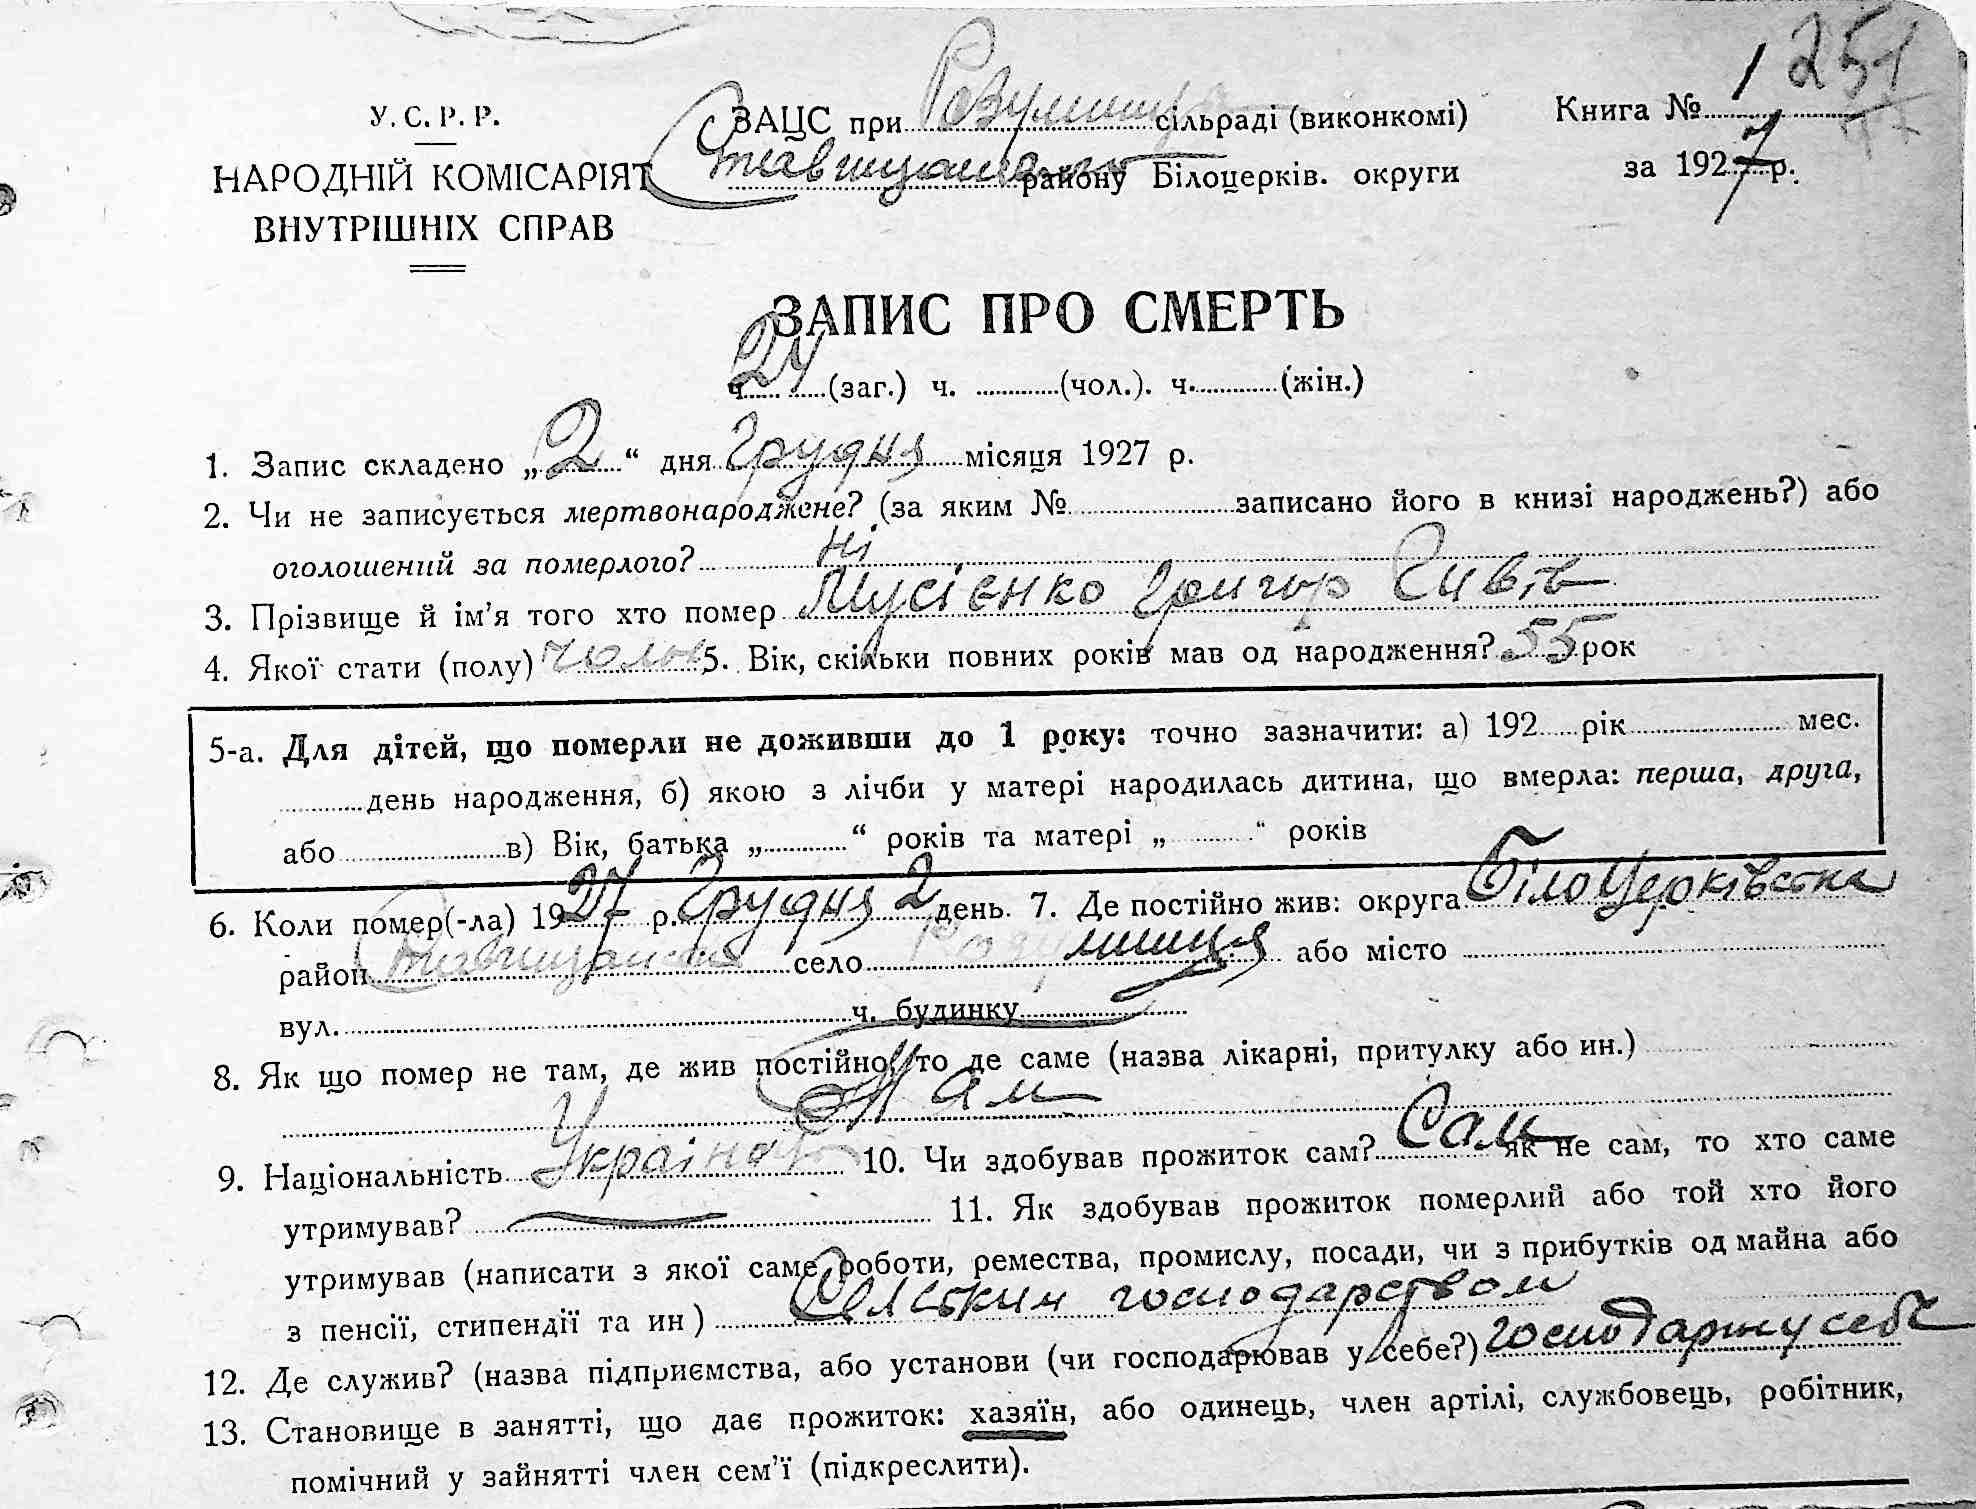 1 251
У. С. Р. Р.
НАРОДНІЙ КОМІСАРІЯТ
ВНУТРІШНІХ СПРАВ
ЗАЦС при сільраді (виконкомі)
Ставищанского району Білоцерків. округи
Книга № 1
за 1927 р.
ЗАПИС ПРО СМЕРТЬ
ч. 24 (заг.) ч. (чол.). ч. (жін.)
1. Запис складено „ 2 “ дня Грудня місяця 1927 р.
2. Чи не записується мертвонароджене? (за яким № записано його в книзі народжень?) або
оголошений за померлого? Ні
3. Прізвище й ім’я того хто помер Мусієнко Григор Сивів
4. Якої стати (полу) чолов 5. Вік, скільки повних років мав од народження? 55 рок
5-а. Для дітей, що померли не доживши до 1 року: точно зазначити: а) 192 рік мес.
день народження, б) якою з лічби у матері народилась дитина, що вмерла: перша, друга,
або в) Вік, батька „ “ років та матері „ “ років
6. Коли помер(-ла) 1927 р. Грудня 2 день. 7. Де постійно жив: округа Білоцерківська
район Ставищанский село Розумниця або місто
вул. ч. будинку
8. Як що помер не там, де жив постійно, то де саме (назва лікарні, притулку або ин.)
Там
9. Національність Українець 10. Чи здобував прожиток сам? Сам як не сам, то хто саме
утримував? 11. Як здобував прожиток померлий або той хто його
утримував (написати з якої саме роботи, ремества, промислу, посади, чи з прибутків од майна або
з пенсії, стипендії та ин) Сельским господарством
12. Де служив? (назва підприємства, або установи (чи господарював у себе?) господарит у себе
13. Становище в занятті, що дає прожиток: хазяїн, або одинець, член артілі, службовець, робітник,
помічний у зайнятті член сем’ї (підкреслити).